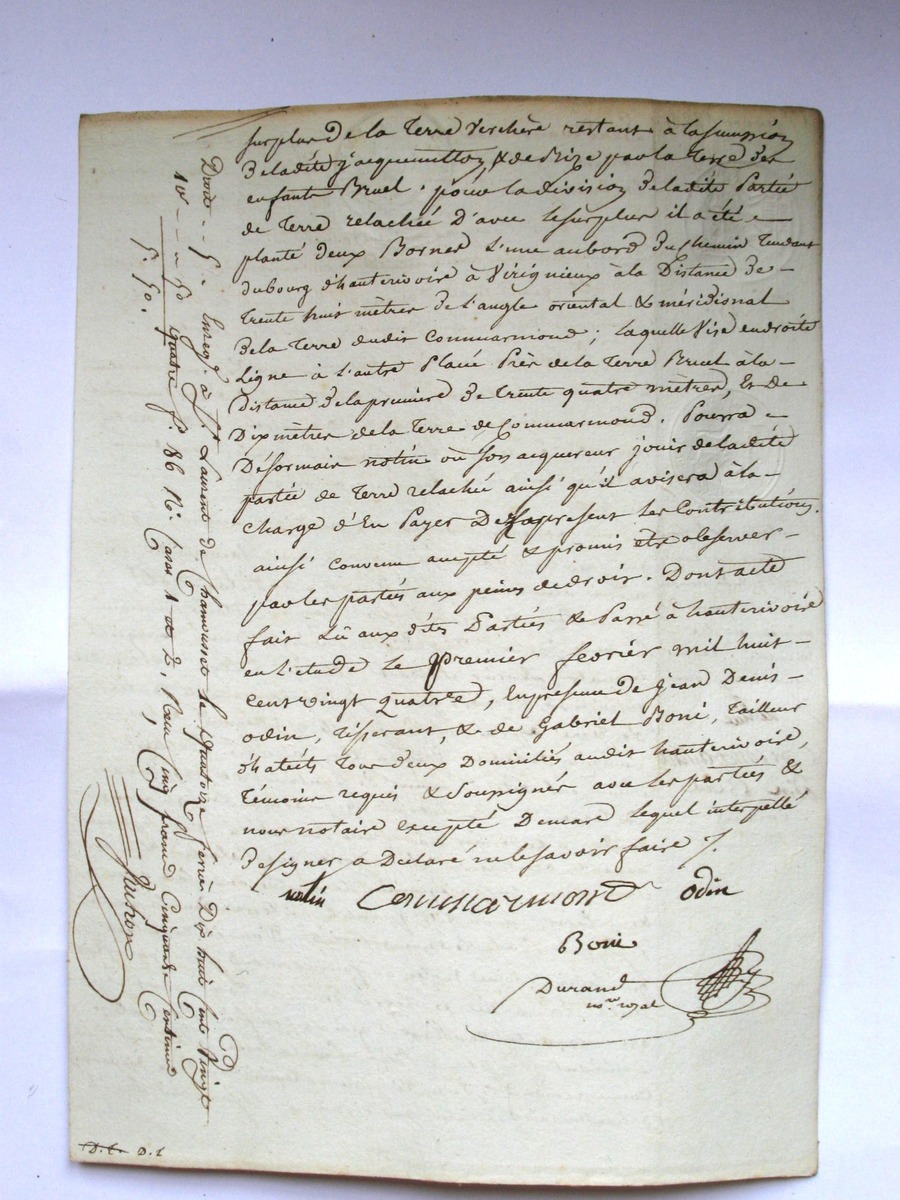 surplus de la Terre Verchère restant à la
de ladite jacquemetton, & de Bize par la Terre des
enfants Bruel. pour la division de ladite Partie
de Terre relachée d'avec le surplus il a été -
planté deux Bornes L'une au bord du chemin Tendant
du bourg d'hauterivoire à Virignieux à la Distance de -
Trente huit mètres de l'angle oriental & méridional
de la Terre dudit Commarmond; laquelle Vise en droite
Ligne à L'autre Placée Près de la Terre Bruel à la -
Distance de la première de Trente quatre mètres, Et de
Dix mètres de la Terre de Commarmond. Pourra -
Désormais notin ou son acquereur jouir de ladite
partie de Terre relachée ainsi qu'il avisera à la -
charge d'En Payer Des apresent les Contributions.
ainsi convenu accepté & promis etre observer -
par les parties aux peines de droit. Dont acte
fait Lû aux dites Parties & Passé à hauterivoire
en l'etude le premier fevrier mil huit -
cent vingt quatre, En presence de jean Denis -
odin, Tisserant, & de Gabriel Boni, Tailleur
d'habits Tous deux Domiciliés audit hauterivoire,
Témoins requis & Soussignés avec les parties &
nous notaire excepté Demare lequel interpellé
de signer a Déclaré ne le savoir faire /.
notin Commarmond odin
Boni
Durand
nore royal
Droits .. 5.
10e .. .. 50
5 50.
Enregé. à St Laurent de Chamousset le quatorze fevrier Dix huit Cent Vingt
quatre fo. 86 Ro. Cases 1 et 2, Reçu Cinq francs Cinquante Centimes
D. L